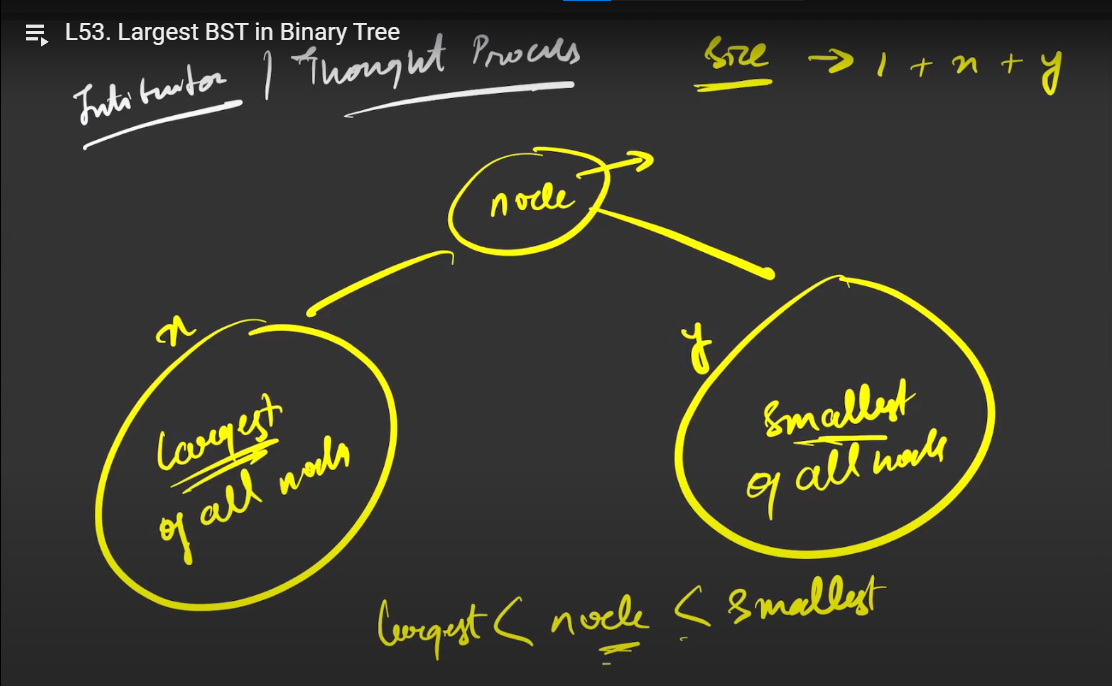 L53. Largest BST in Binary Tree
Intuition | Thought Process
Size → 1 + x + y
node
x
y
Largest
of all nodes
Smallest
of all node
largest < node < smallest